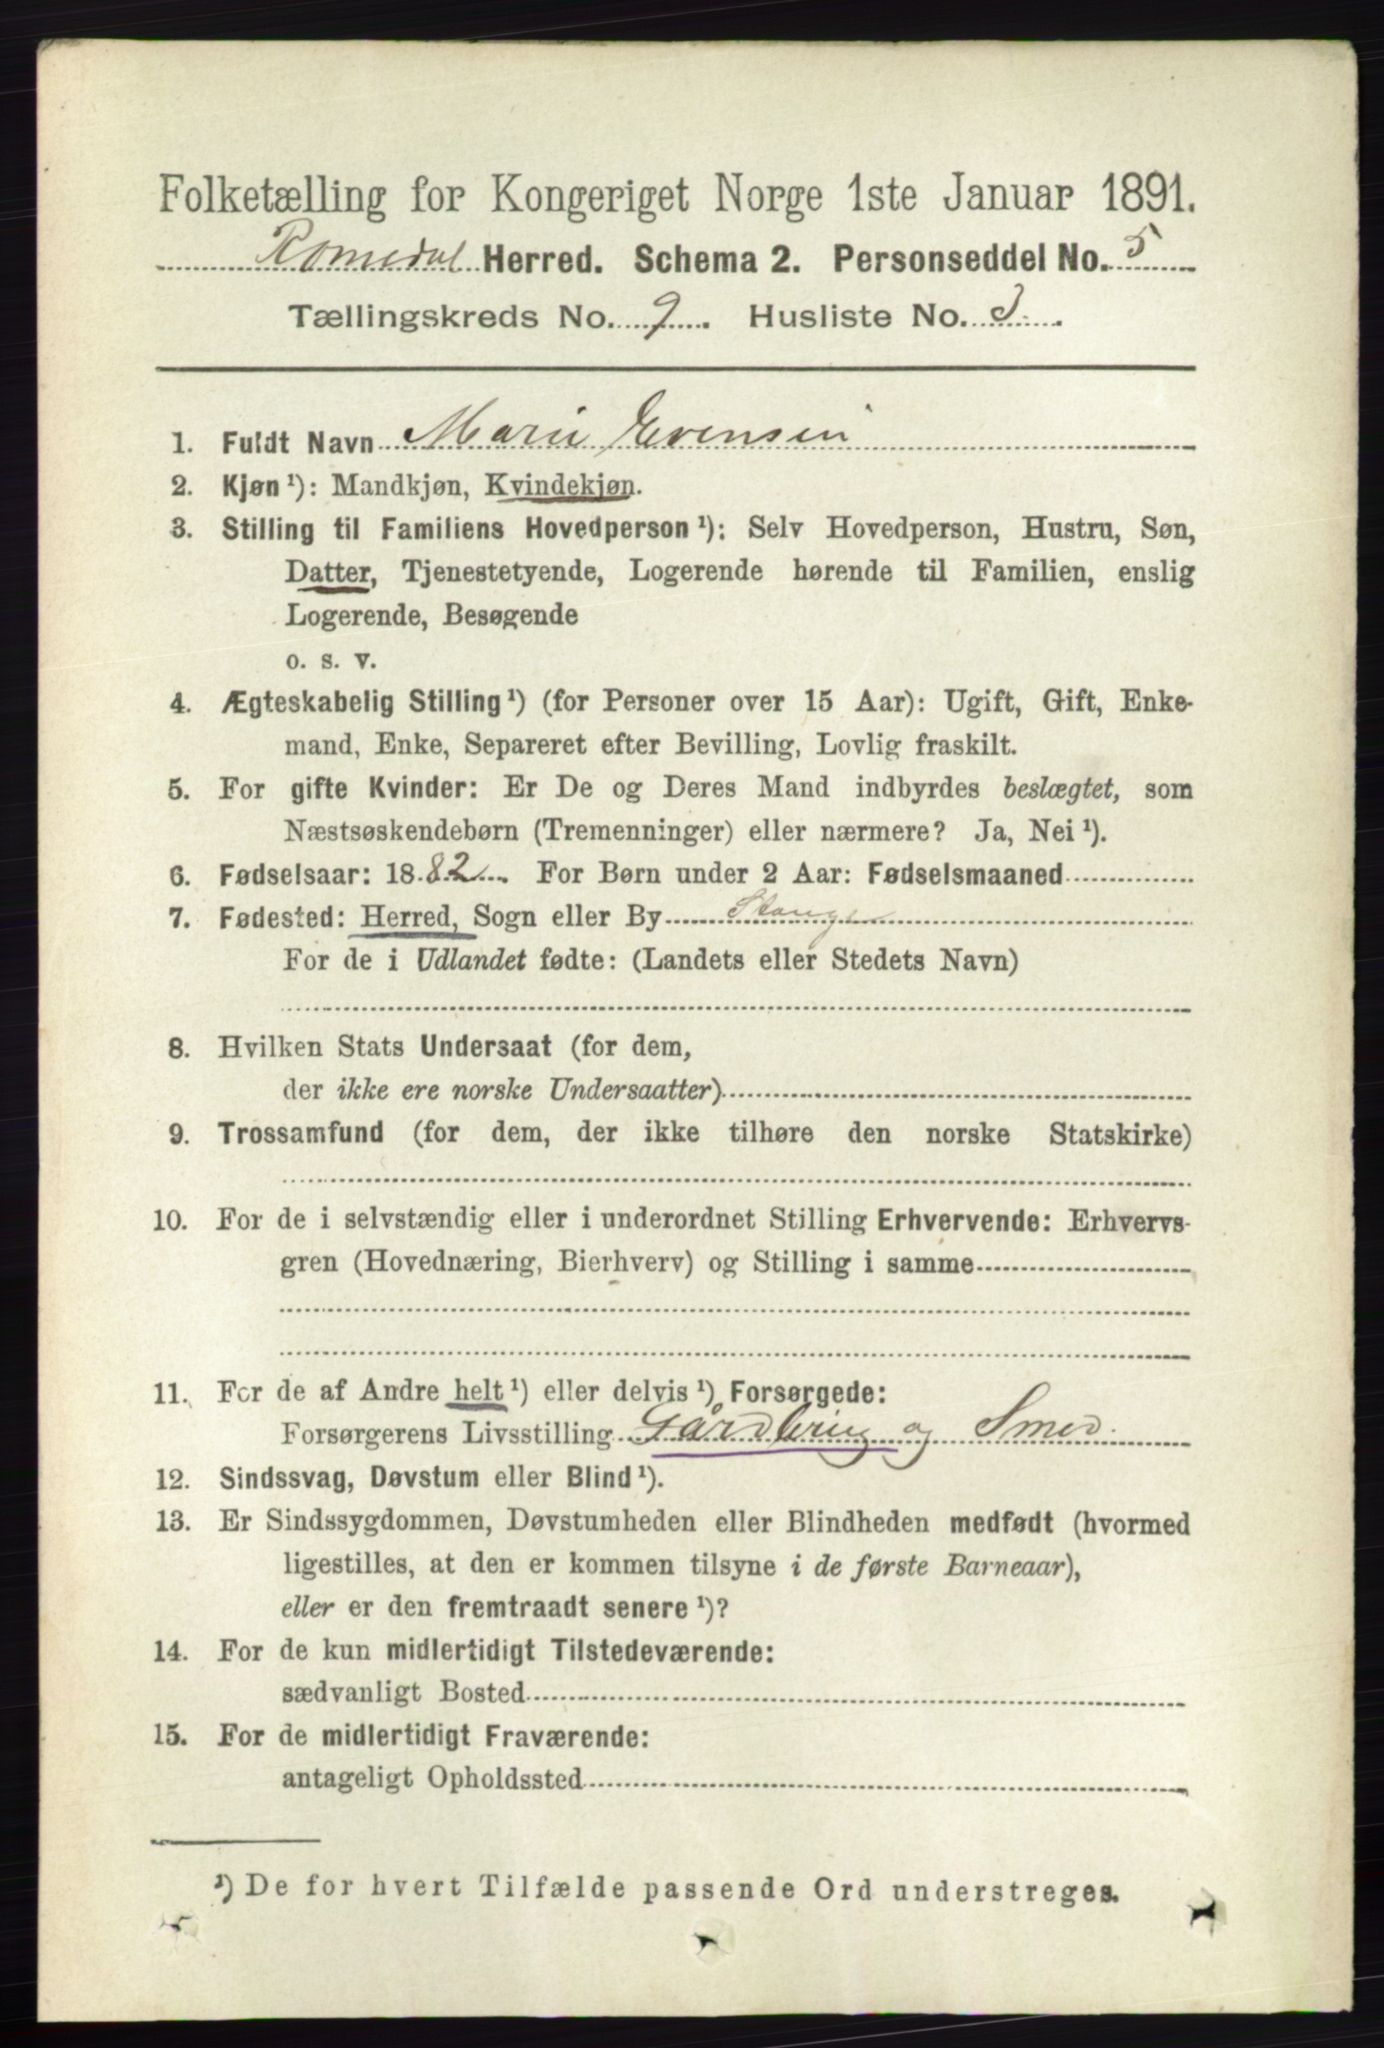 Folketælling for Kongeriget Norge 1ste Januar 1891.
Romedal Herred. Schema 2. Personseddel No. 5
Tællingskreds No. 9. Husliste No. 3.
1. Fuldt Navn Marie Evensen
2. Kjøn¹): Mandkjøn, Kvindekjøn.
3. Stilling til Familiens Hovedperson¹): Selv Hovedperson, Hustru, Søn,
Datter, Tjenestetyende, Logerende hørende til Familien, enslig
Logerende, Besøgende
o. s. v.
4. Ægteskabelig Stilling¹) (for Personer over 15 Aar): Ugift, Gift, Enke-
mand, Enke, Separeret efter Bevilling, Lovlig fraskilt.
5. For gifte Kvinder: Er De og Deres Mand indbyrdes beslægtet, som
Næstsøskendebørn (Tremenninger) eller nærmere? Ja, Nei¹).
6. Fødselsaar: 1882. For Børn under 2 Aar: Fødselsmaaned
7. Fødested: Herred, Sogn eller By Stange
For de i Udlandet fødte: (Landets eller Stedets Navn)
8. Hvilken Stats Undersaat (for dem,
der ikke ere norske Undersaatter)
9. Trossamfund (for dem, der ikke tilhøre den norske Statskirke)
10. For de i selvstændig eller i underordnet Stilling Erhvervende: Erhvervs-
gren (Hovednæring, Bierhverv) og Stilling i samme
11. For de af Andre helt¹) eller delvis¹) Forsørgede:
Forsørgerens Livsstilling Gårdbrug og Smed.
12. Sindssvag, Døvstum eller Blind¹).
13. Er Sindssygdommen, Døvstumheden eller Blindheden medfødt (hvormed
ligestilles, at den er kommen tilsyne i de første Barneaar),
eller er den fremtraadt senere¹)?
14. For de kun midlertidigt Tilstedeværende:
sædvanligt Bosted
15. For de midlertidigt Fraværende:
antageligt Opholdssted
¹) De for hvert Tilfælde passende Ord understreges.